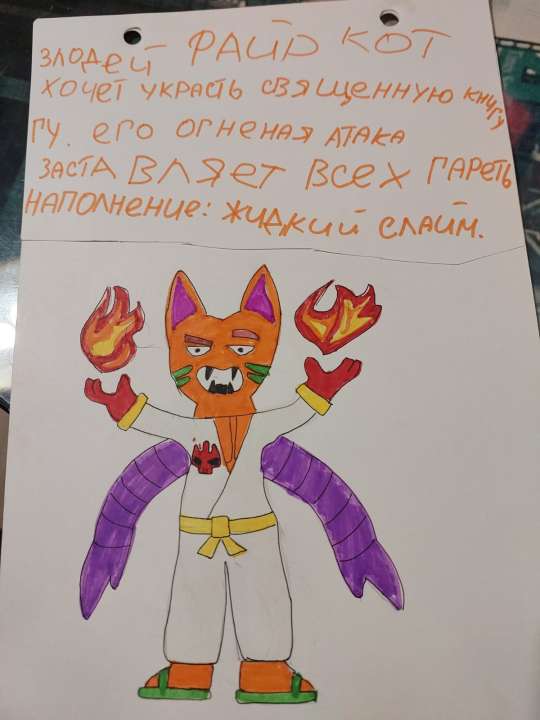 ЗЛОДЕЙ РАЙД КОТ
ХОЧЕТ УКРАСТЬ СВЯЩЕННУЮ КНИГУ
ГУ. ЕГО ОГНЕНАЯ АТАКА
ЗАСТАВЛЯЕТ ВСЕХ ГАРЕТЬ
НАПОЛНЕНИЕ: ЖИДКИЙ СЛАЙМ.